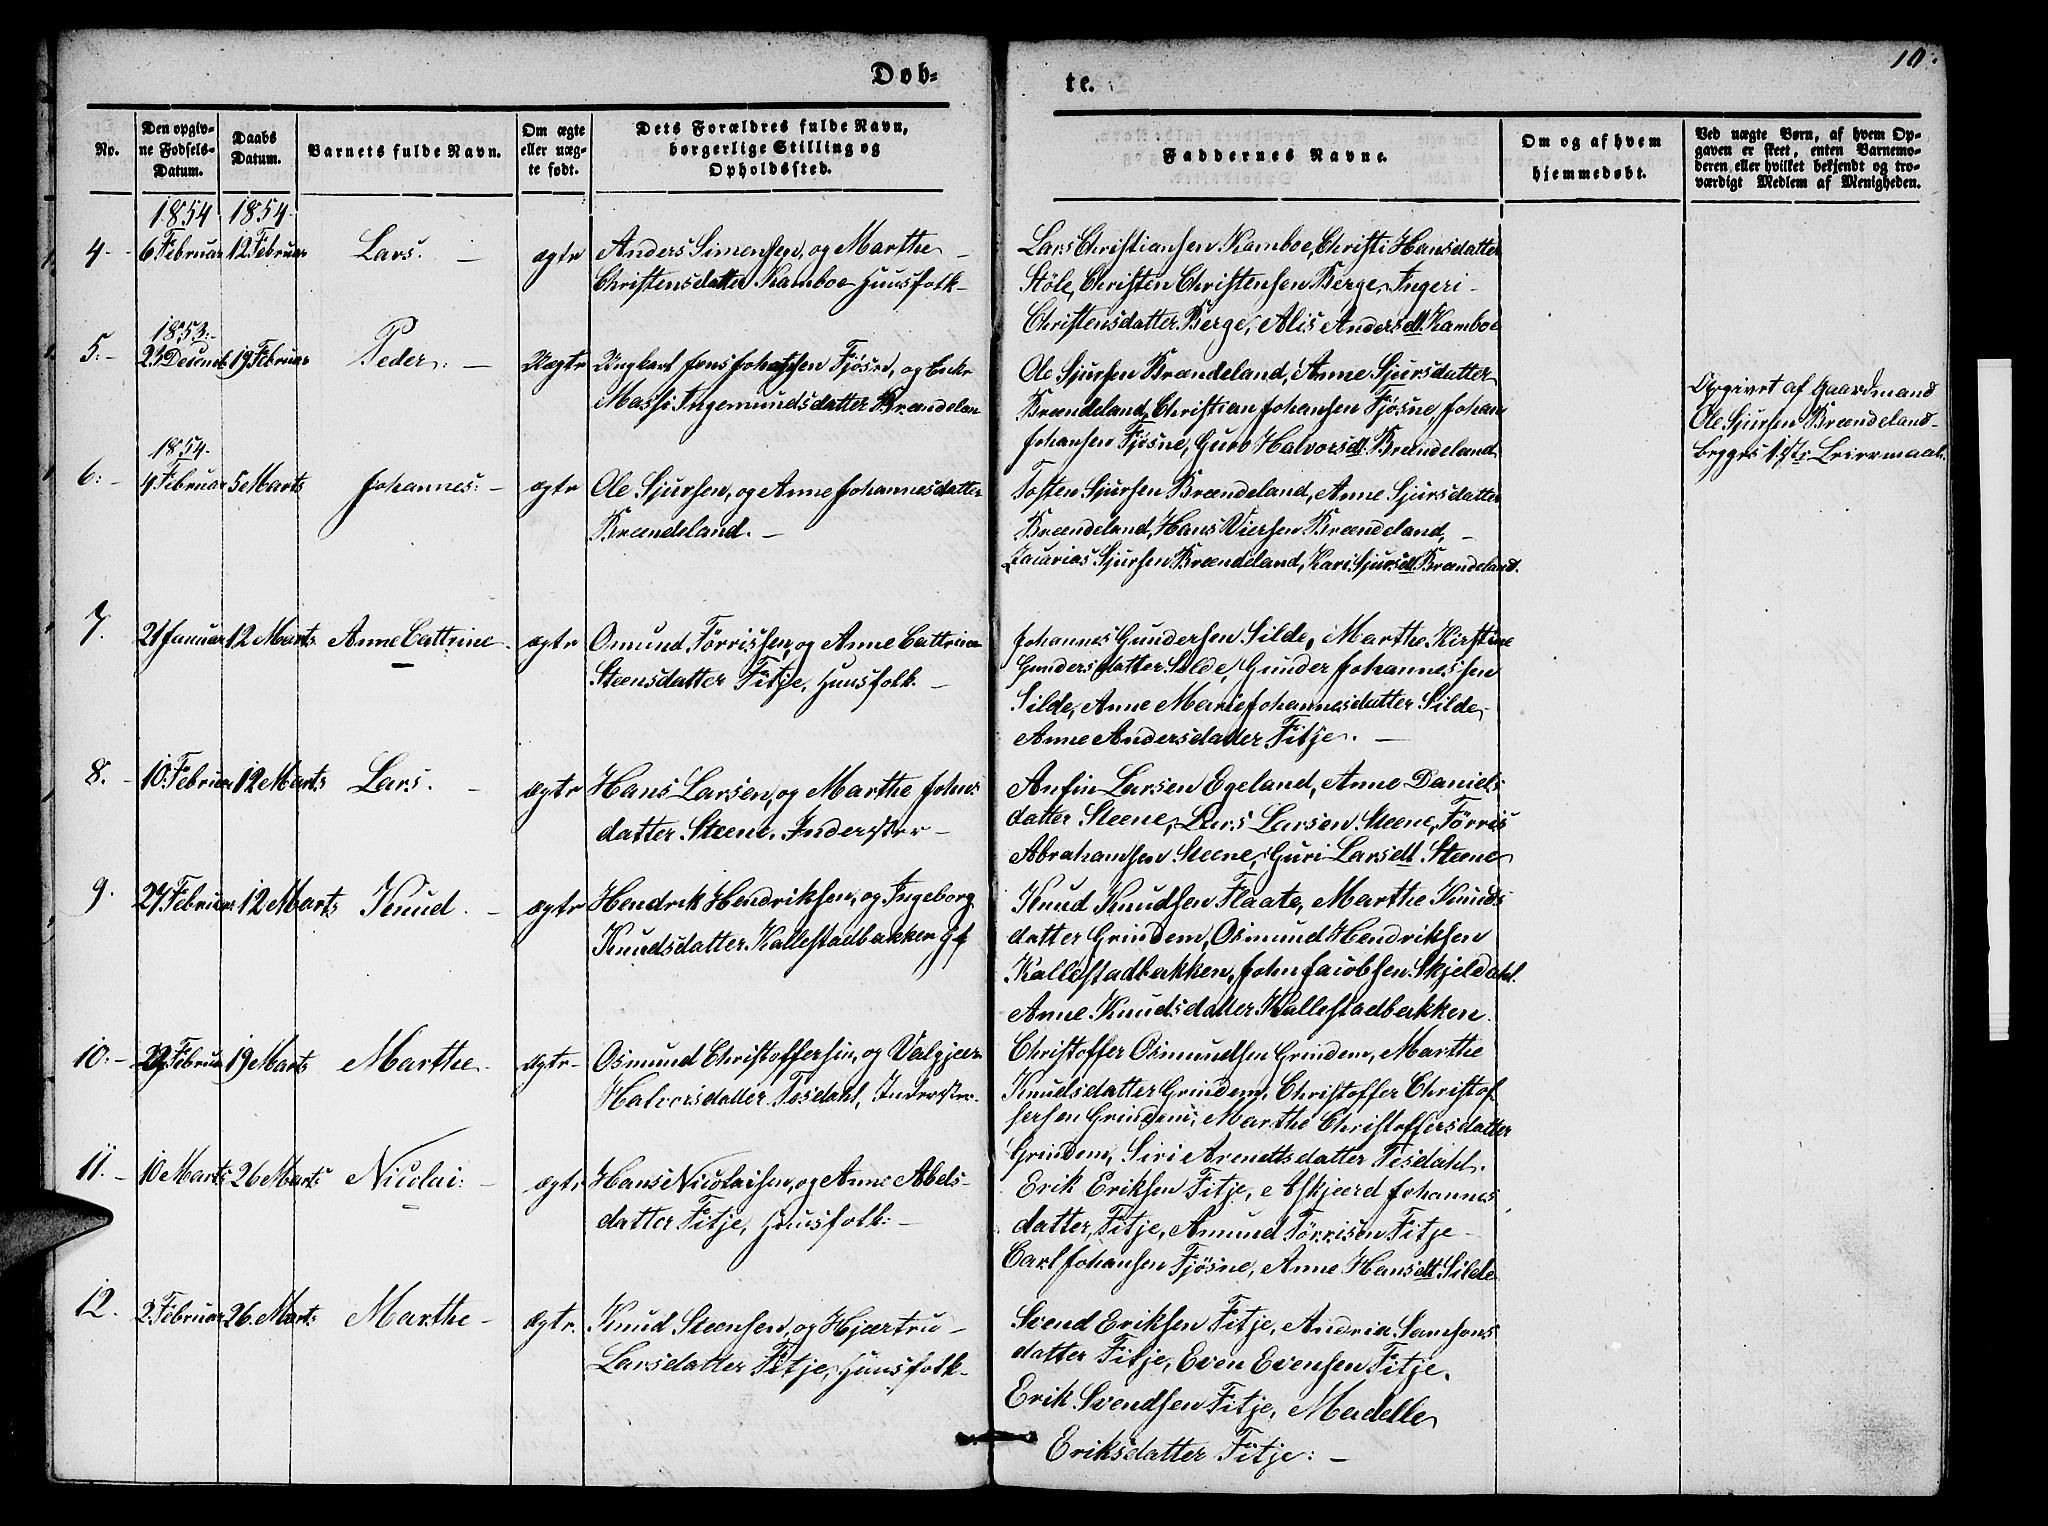 10.
Døb-
te.
No.
Den opgiv-
ne Fødsels-
Datum.
Daabs
Datum.
Barnets fulde Navn.
Om ægte
eller uæg-
te født.
Dets Forældres fulde Navn,
borgerlige Stilling og
Opholdssted.
Faddernes Navne.
Om og af hvem
hjemmedøbt.
Ved uægte Børn, af hvem Op-
gaven er skeet, enten Barnemo-
deren eller hvilket bekjendt og tro-
værdigt Medlem af Menigheden.
1854 1854.
4. - 6 Februar 12 Februar Lars. - ægte Anders Simensen, og Marthe
Christensdatter Kamboe Huusfolk -
Lars Christiansen Kamboe, Christi Hansdatter
Støle, Christen Christensen Berge, Ingeri -
Christensdatter Berge, Alis Andersdt Kamboe
1853:
5. - 23 Decemb 19 Februar Peder. - Uægte Ungkarl Jens Johansen Fjøsne, og Enke
Massi Ingemundsdatter Brændelan
Ole Sjursen Brændeland, Anne Sjursdatter
Brændeland, Christian Johansen Fjøsne, Johan
Johansen Fjøsne, Guro Halvorsdt Brændeland.
Opgivet af Gaardmand
Ole Sjursen Brændeland -
begges 1ste Leiermaal.
1854.
6: - 4 Februar 5 Marts Johannes: - ægte Ole Sjursen, og Anne Johannesdatter
Brændeland. -
Tosten Sjursen Brændeland, Anne Sjursdatter
Brændeland, Hans Viersen Brændeland, -
Zacarias Sjursen Brændeland, Kari Sjursdt Brændeland.
7. 21 Januar 12 Marts Anne Cattrine. ægte Omund Tørrissen, og Anne Cattrine
Steensdatter Fitje, Huusfolk. -
Johannes Gundersen Silde, Marthe Kirstine
Gundersdatter Silde, Gunder Johannessen
Silde, Anne Marie Johannesdatter Silde,
Anne Andersdatter Fitje. -
8. - 10 Februar 12 Marts Lars. - ægte Hans Larsen, og Marthe Johns
datter Steene, Inderster -
Anfin Larsen Egeland, Anne Daniels
datter Steene, Lars Larsen Steene, Tørris
Abrahamsen Steene, Guri Larsdt Steene
9. 27 Februar 12 Marts Knud. - ægte Hendrik Hendriksen, og Ingeborg
Knudsdatter Kallestadbakken gf
Knud Knudsen Flaate, Marthe Knuds
datter Grindem, Osmund Hendriksen
Kallestadbakken, John Jacobsen Skjeldahl.
Anne Knudsdatter Kallestadbakken.
10: - Februar 19 Marts Marthe. ægte - Osmund Christoffersen, og Valgjeer
Halvorsdatter Tesdahl, Inderster.
Christoffer Osmundsen Grindem, Marthe
Knudsdatter Grindem, Christoffer Christof
fersen Grindem, Marthe Christoffersdatter
Grindem, Siri Arnettsdatter Tesdahl.
11. - 10 Marts 26 Marts Nicolai: - ægte Hans Nicolaisen, og Anne Abels-
datter Fitje, Huusfolk: -
Erik Eriksen Fitje, Askjærd Johannes
datter, Fitje, Amund Tørrisen Fitje -
Carl Johansen Fjøsne, Anne Hansdt Silde
12. 2 Februar 26 Marts Marthe - ægte. Knud Steensen, og Hjærtru -
Larsdatter Fitje, Huusfolk -
Svend Eriksen Fitje, Andria Samsons
datter Fitje, Even Evensen Fitje,
Erik Svendsen Fitje, Madelle
Eriksdatter Fitje: -